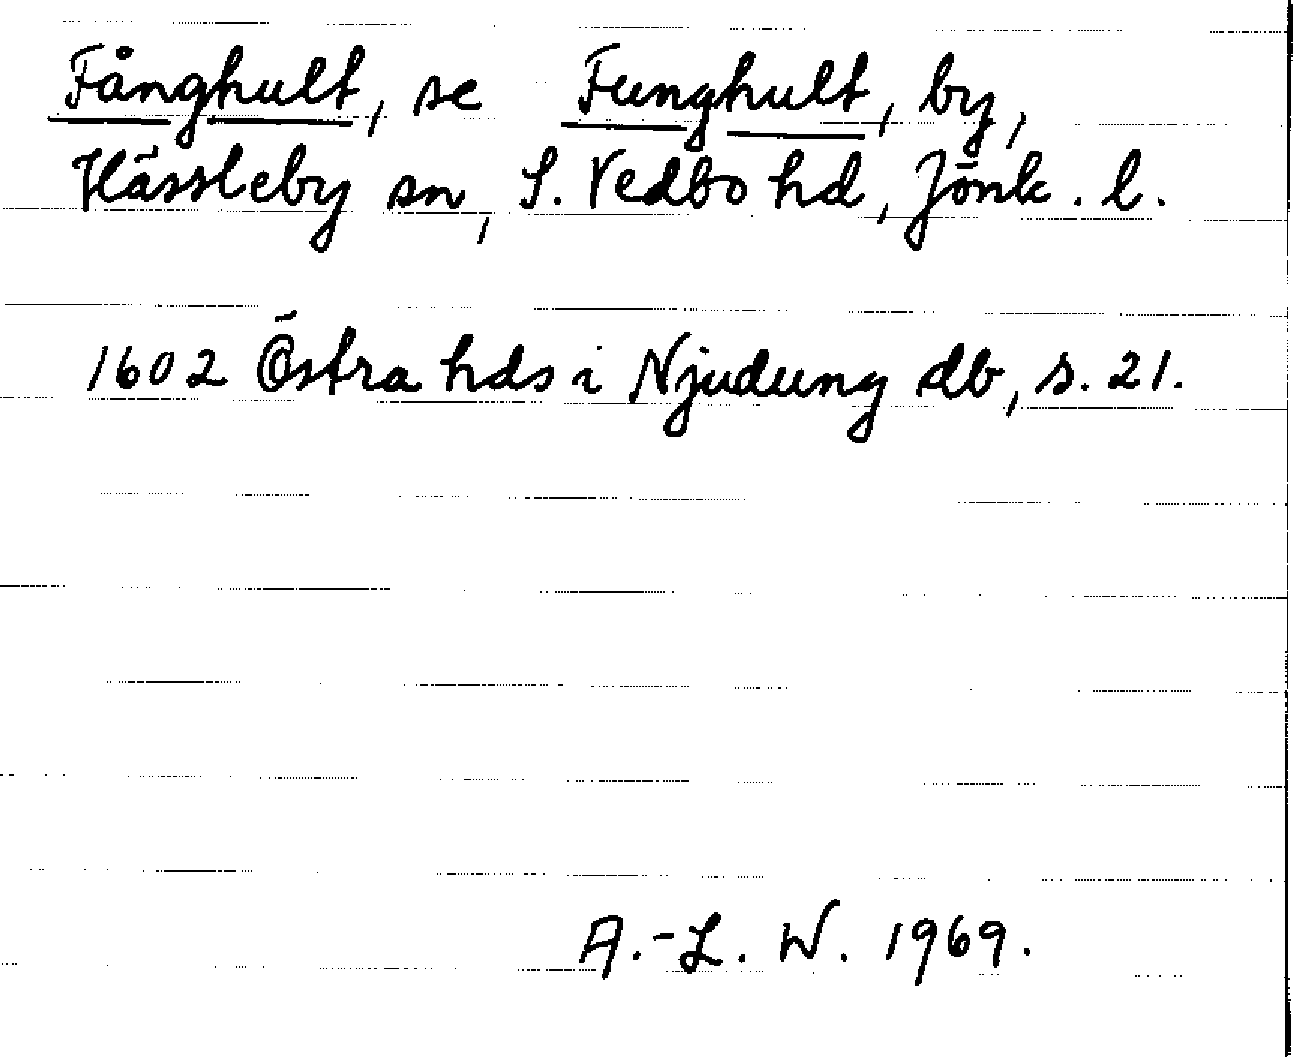 Fånghult, se Funghult, by,
Hässleby sn, S. Vedbo hd, Jönk. l.
1602 Östra hds i Njudung db, s. 21.
A.-L. W. 1969.